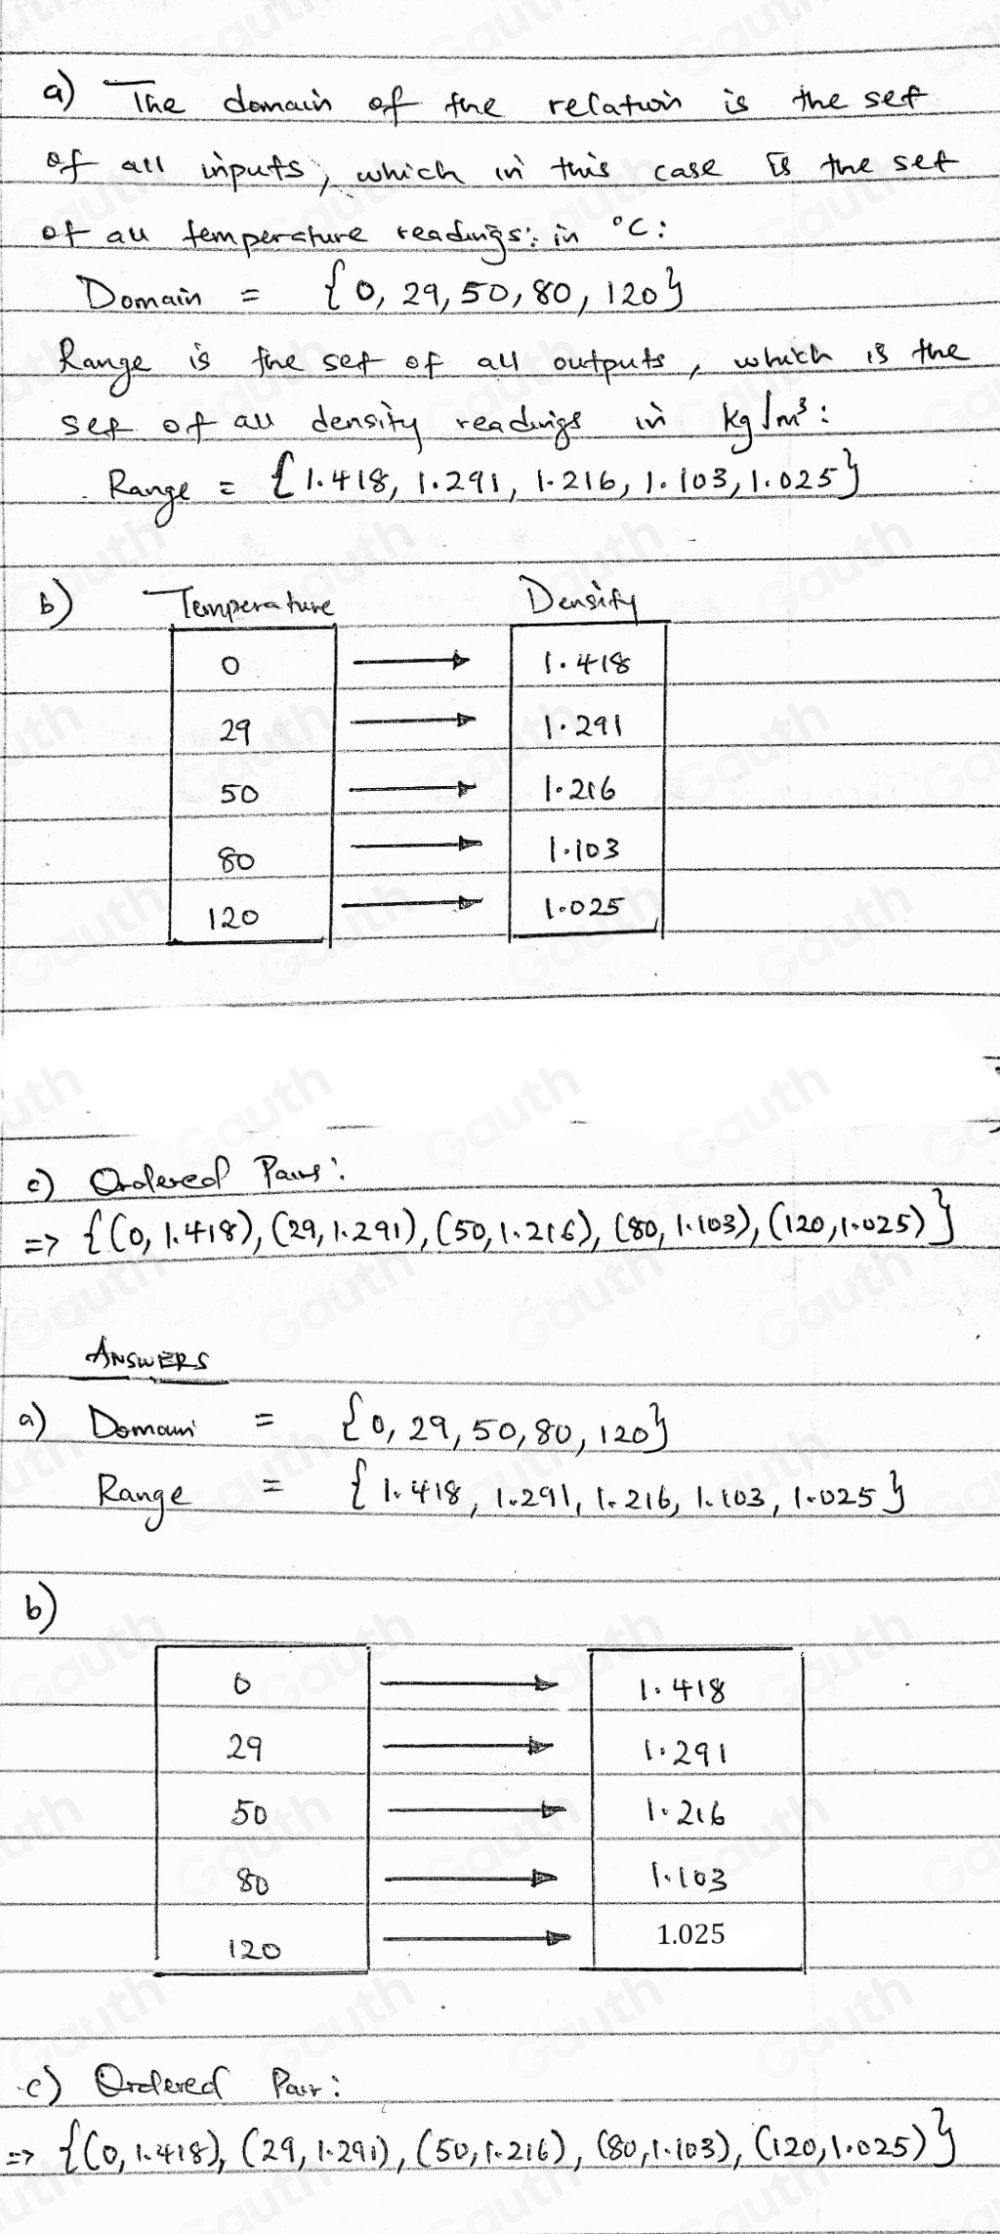 a) The domain of the relation is the set
of all inputs, which in this case is the set
of all temperature readings: in °C:
Domain = {0, 29, 50, 80, 120}
Range is the set of all outputs, which is the
set of all density readings in kg/m³:
Range = {1.418, 1.291, 1.216, 1.103, 1.025}
b) Temperature Density
0 → 1.418
29 → 1.291
50 → 1.216
80 → 1.103
120 → 1.025
c) Ordered Pairs:
=> {(0, 1.418), (29, 1.291), (50, 1.216), (80, 1.103), (120, 1.025)}
ANSWERS
a) Domain = {0, 29, 50, 80, 120}
Range = {1.418, 1.291, 1.216, 1.103, 1.025}
b)
0 → 1.418
29 → 1.291
50 → 1.216
80 → 1.103
120 → 1.025
c) Ordered Pair:
=> {(0, 1.418), (29, 1.291), (50, 1.216), (80, 1.103), (120, 1.025)}